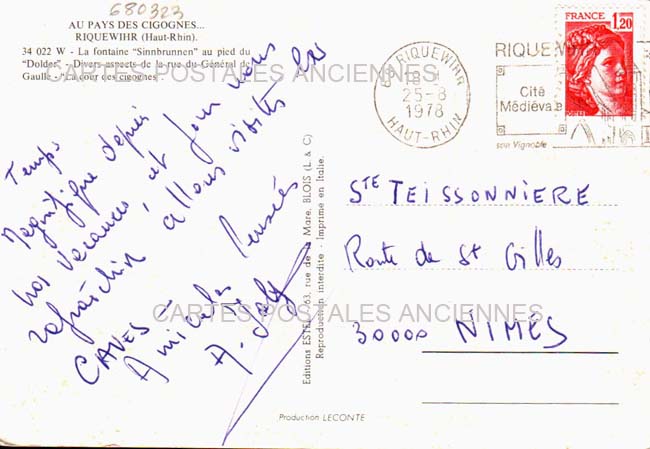 680323
AU PAYS DES CIGOGNES...
RIQUEWIHR (Haut-Rhin).
34 022 W - La fontaine "Sinnbrunnen" au pied du
"Dolder" - Divers aspects de la rue du Général de
Gaulle - "La tour des cigognes".
CARTES POSTALES ANCIENNES
Temps
Magnifique depuis
nos vacances, et pour nous
rafraîchir allons visiter les
CAVES -
Amicales Pensées
A.
Editions ESTEL, 63, rue de la Mare, BLOIS (L. & C)
Reproduction interdite - Imprimé en Italie.
Production LECONTE
RIQUEWIHR
25-8
1978
HAUT-RHIN
RIQUEWIHR
Cité
Médiévale
son Vignoble
FRANCE
1,20
STE TEISSONNIERE
Route de St Gilles
CARTES POSTALES ANCIENNES
30000 NIMES